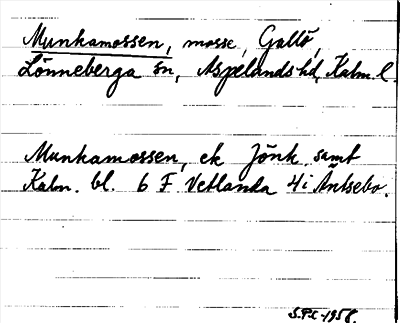 Munkamossen, mosse, Gallö,
Lönneberga sn, Aspelands hd, Kalm. l.
Munkamossen, ek Jönk. samt
Kalm. bl. 6 F Vetlanda 4 i Äntsebo.
S.P.S. 1958.